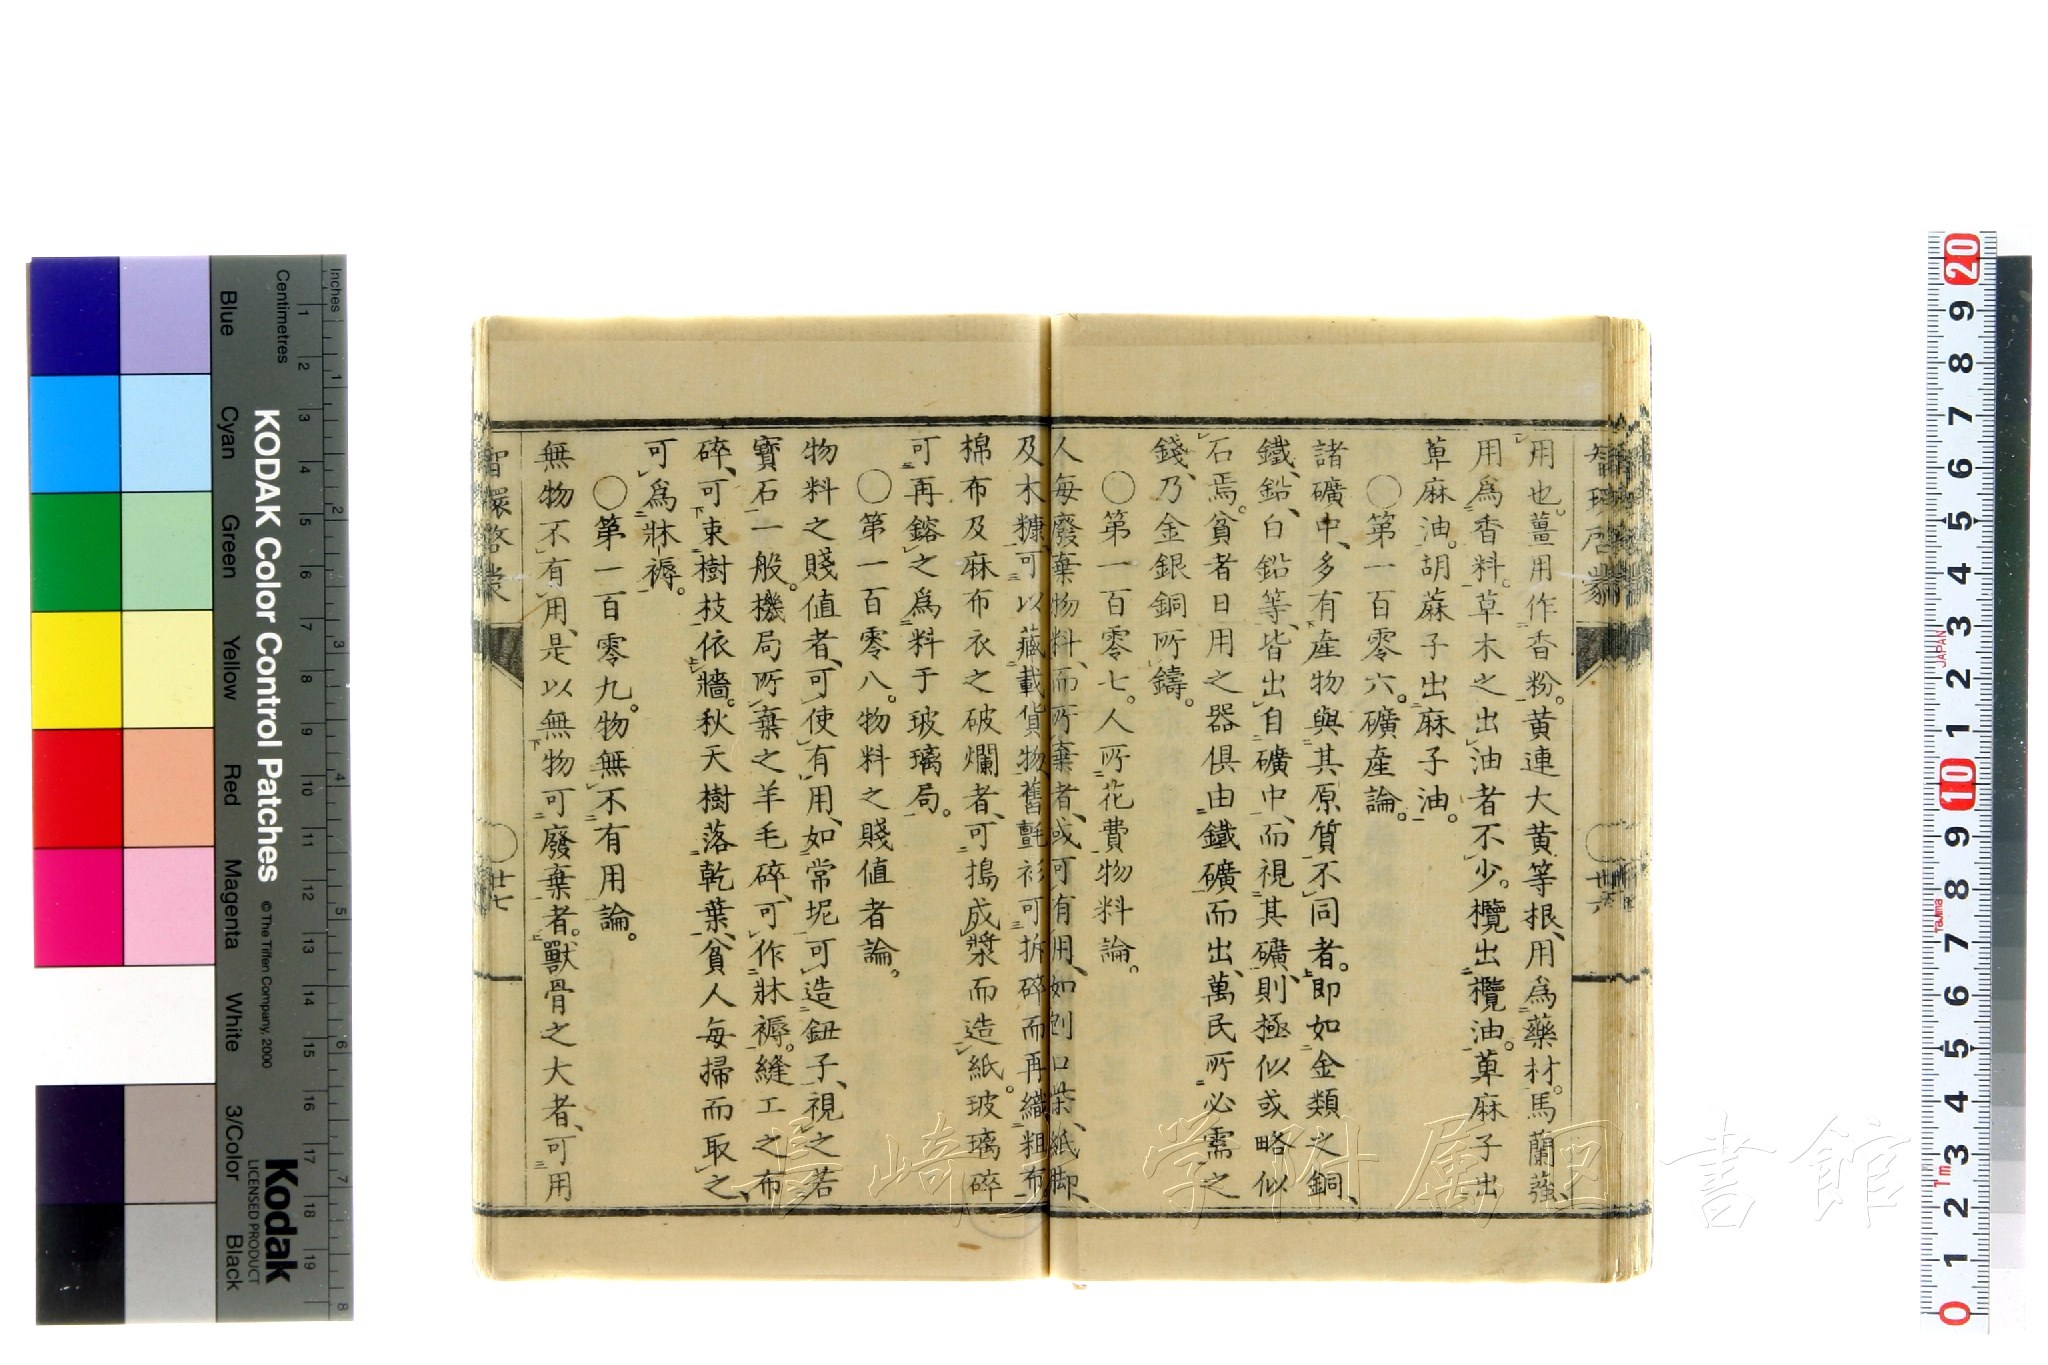 用也。薑用作香粉。黃連大黃等根、用爲藥材。馬蘭薐、
用爲香料。草木之出油者不少。欖出欖油。萆麻子出
萆麻油。胡蔴子出麻子油。
○第一百零六。礦產論。
諸礦中、多有產物與其原質不同者。即如金類之銅、
鐵、鉛、白鉛等、皆出自礦中、而視其礦、則極似或略似
石焉。貧者日用之器俱由鐵礦而出、萬民所必需之
錢、乃金銀銅所鑄。
○第一百零七。人所花費物料論。
人每廢棄物料、而所棄者、或可有用、如刨口柴、紙脚、
及木糠、可以藏載貨物、舊氈衫可拆碎而再織粗布、
棉布及麻布衣之破爛者、可搗成漿而造紙。玻璃碎
可再鎔之爲料于玻璃局。
○第一百零八。物料之賤值者論。
物料之賤值者、可使有用、如常坭可造鈕子、視之若
寶石一般。機局所棄之羊毛碎、可作牀褥。縫工之布
碎、可束樹枝依牆。秋天樹落乾葉、貧人每掃而取之、
可爲牀褥。
○第一百零九。物無不有用論。
無物不有用、是以無物可廢棄者。獸骨之大者、可用
智環啓蒙
廿六
智環啓蒙
廿七
長崎大学附属図書館
Inches
Centimetres
1 2 3 4 5 6 7 8 9 10 11 12 13 14 15 16 17 18 19
1 2 3 4 5 6 7 8
Blue Cyan Green Yellow Red Magenta White 3/Color Black
KODAK Color Control Patches © The Tiffen Company, 2000
Kodak
LICENSED PRODUCT
20 9 8 7 6 5 4 3 2 1 10 9 8 7 6 5 4 3 2 1 0
JAPAN
Tajima
Tm